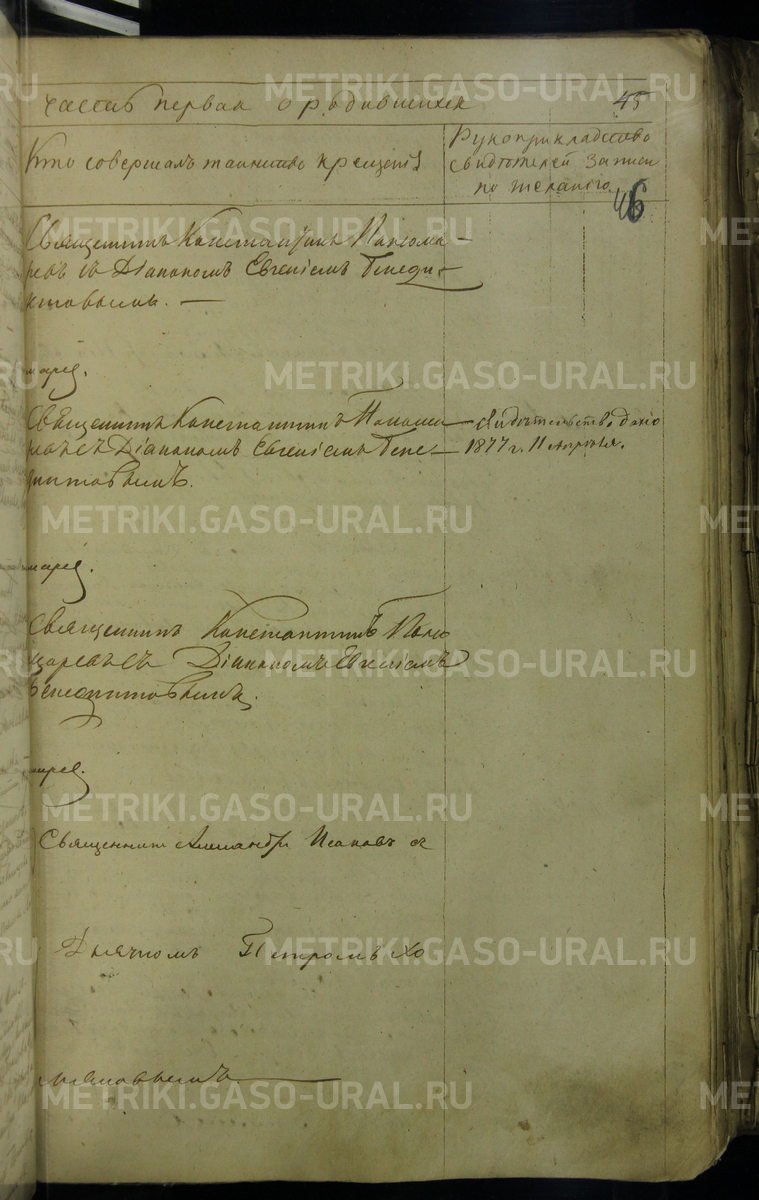 часть первая о родившихся 45
Кто совершалъ таинство крещенія
Рукоприкладство
свидѣтелей записи
по желанію.
46
Священникъ Константинъ Поном-
ревъ съ Діакономъ Евгеніемъ Бенеди-
ктовымъ. —
Священникъ Константинъ Понома-
ревъ съ Діакономъ Евгеніемъ Бене-
диктовымъ.
свидѣтельство дано
1877 г. 11 апрѣля.
Священникъ Константинъ Поно
маревъ съ Діакономъ Евгеніемъ
Бенедиктовымъ.
Священникъ Александръ Исаковъ съ
Дьячкомъ Петромъ Хо
METRIKI.GASO-URAL.RU